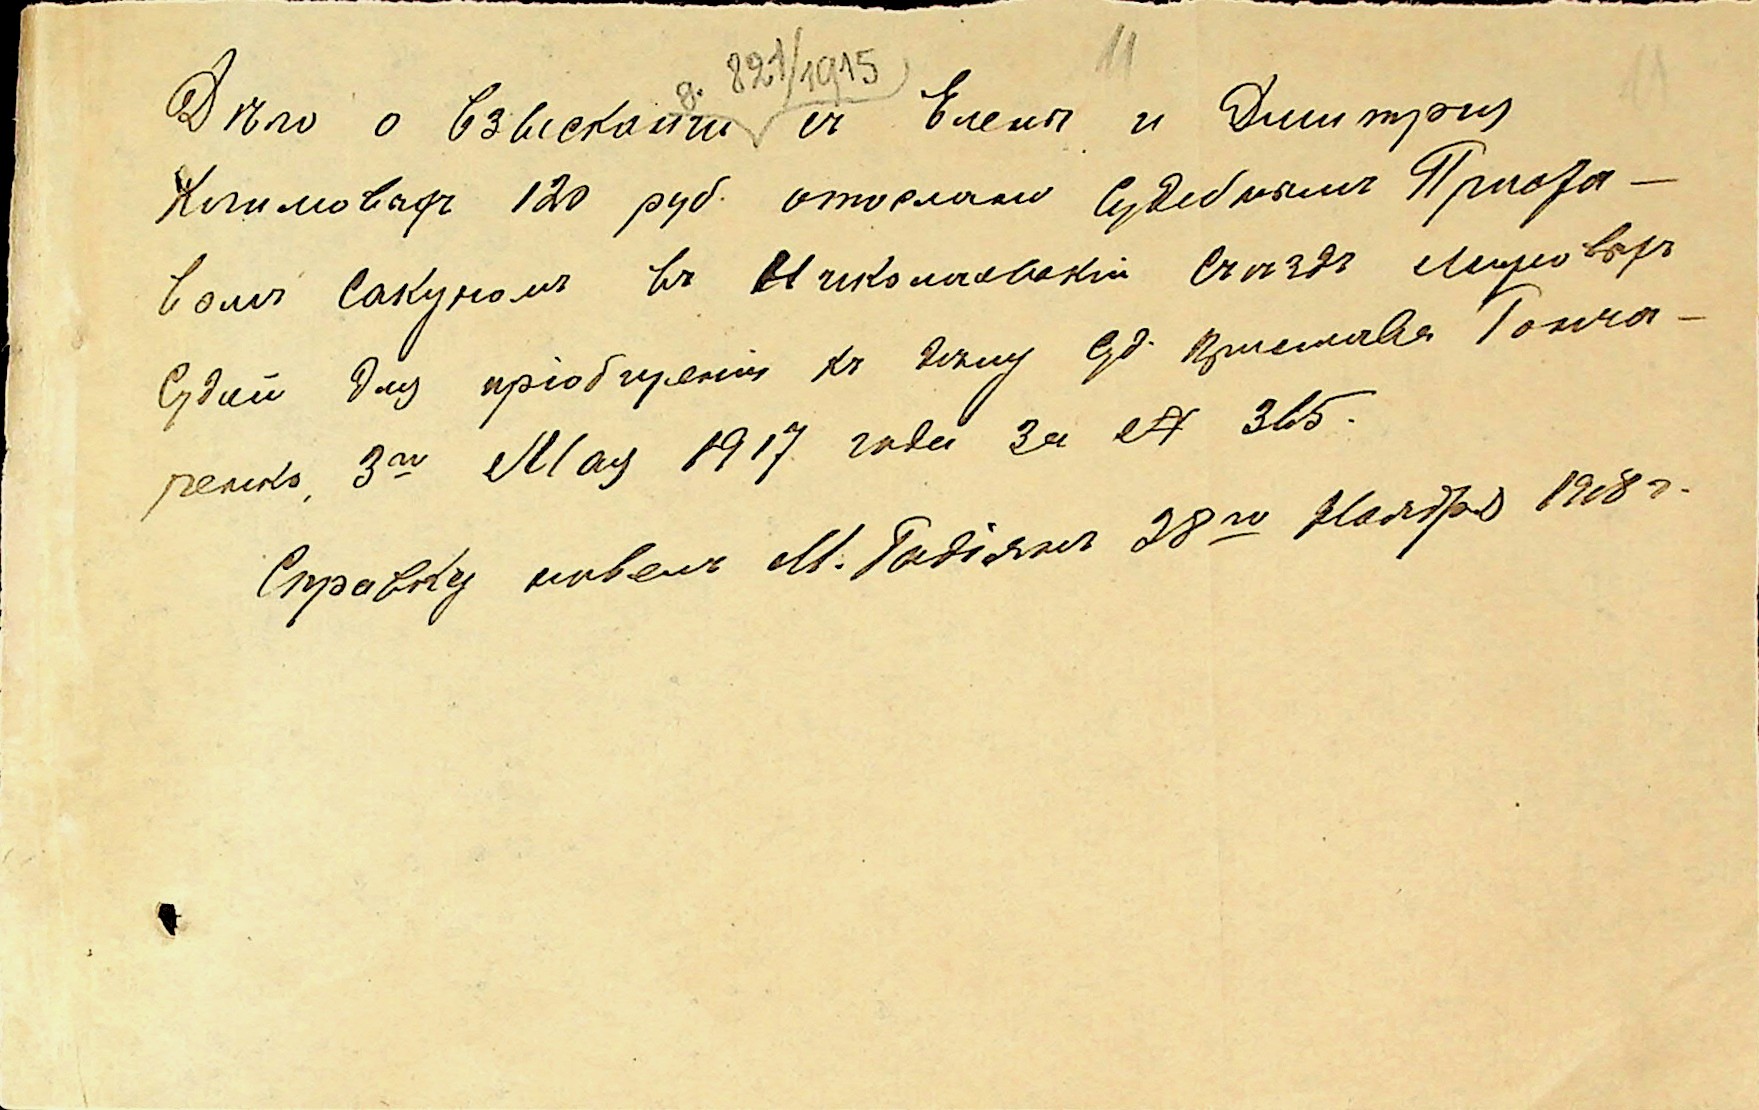 д. 821/1915
11
Дѣло о взысканіи съ Елены и Дмитрія
120 руб. отослано Судебнымъ Приста-
вомъ Сакуномъ въ Николаевскій Съѣздъ Мировыхъ
Судей для пріобщенія къ дѣлу Суд. Пристава Гонча-
ренко, 3го Мая 1917 года за № 365.
Справку навелъ М. 28го Ноября 1918 г.